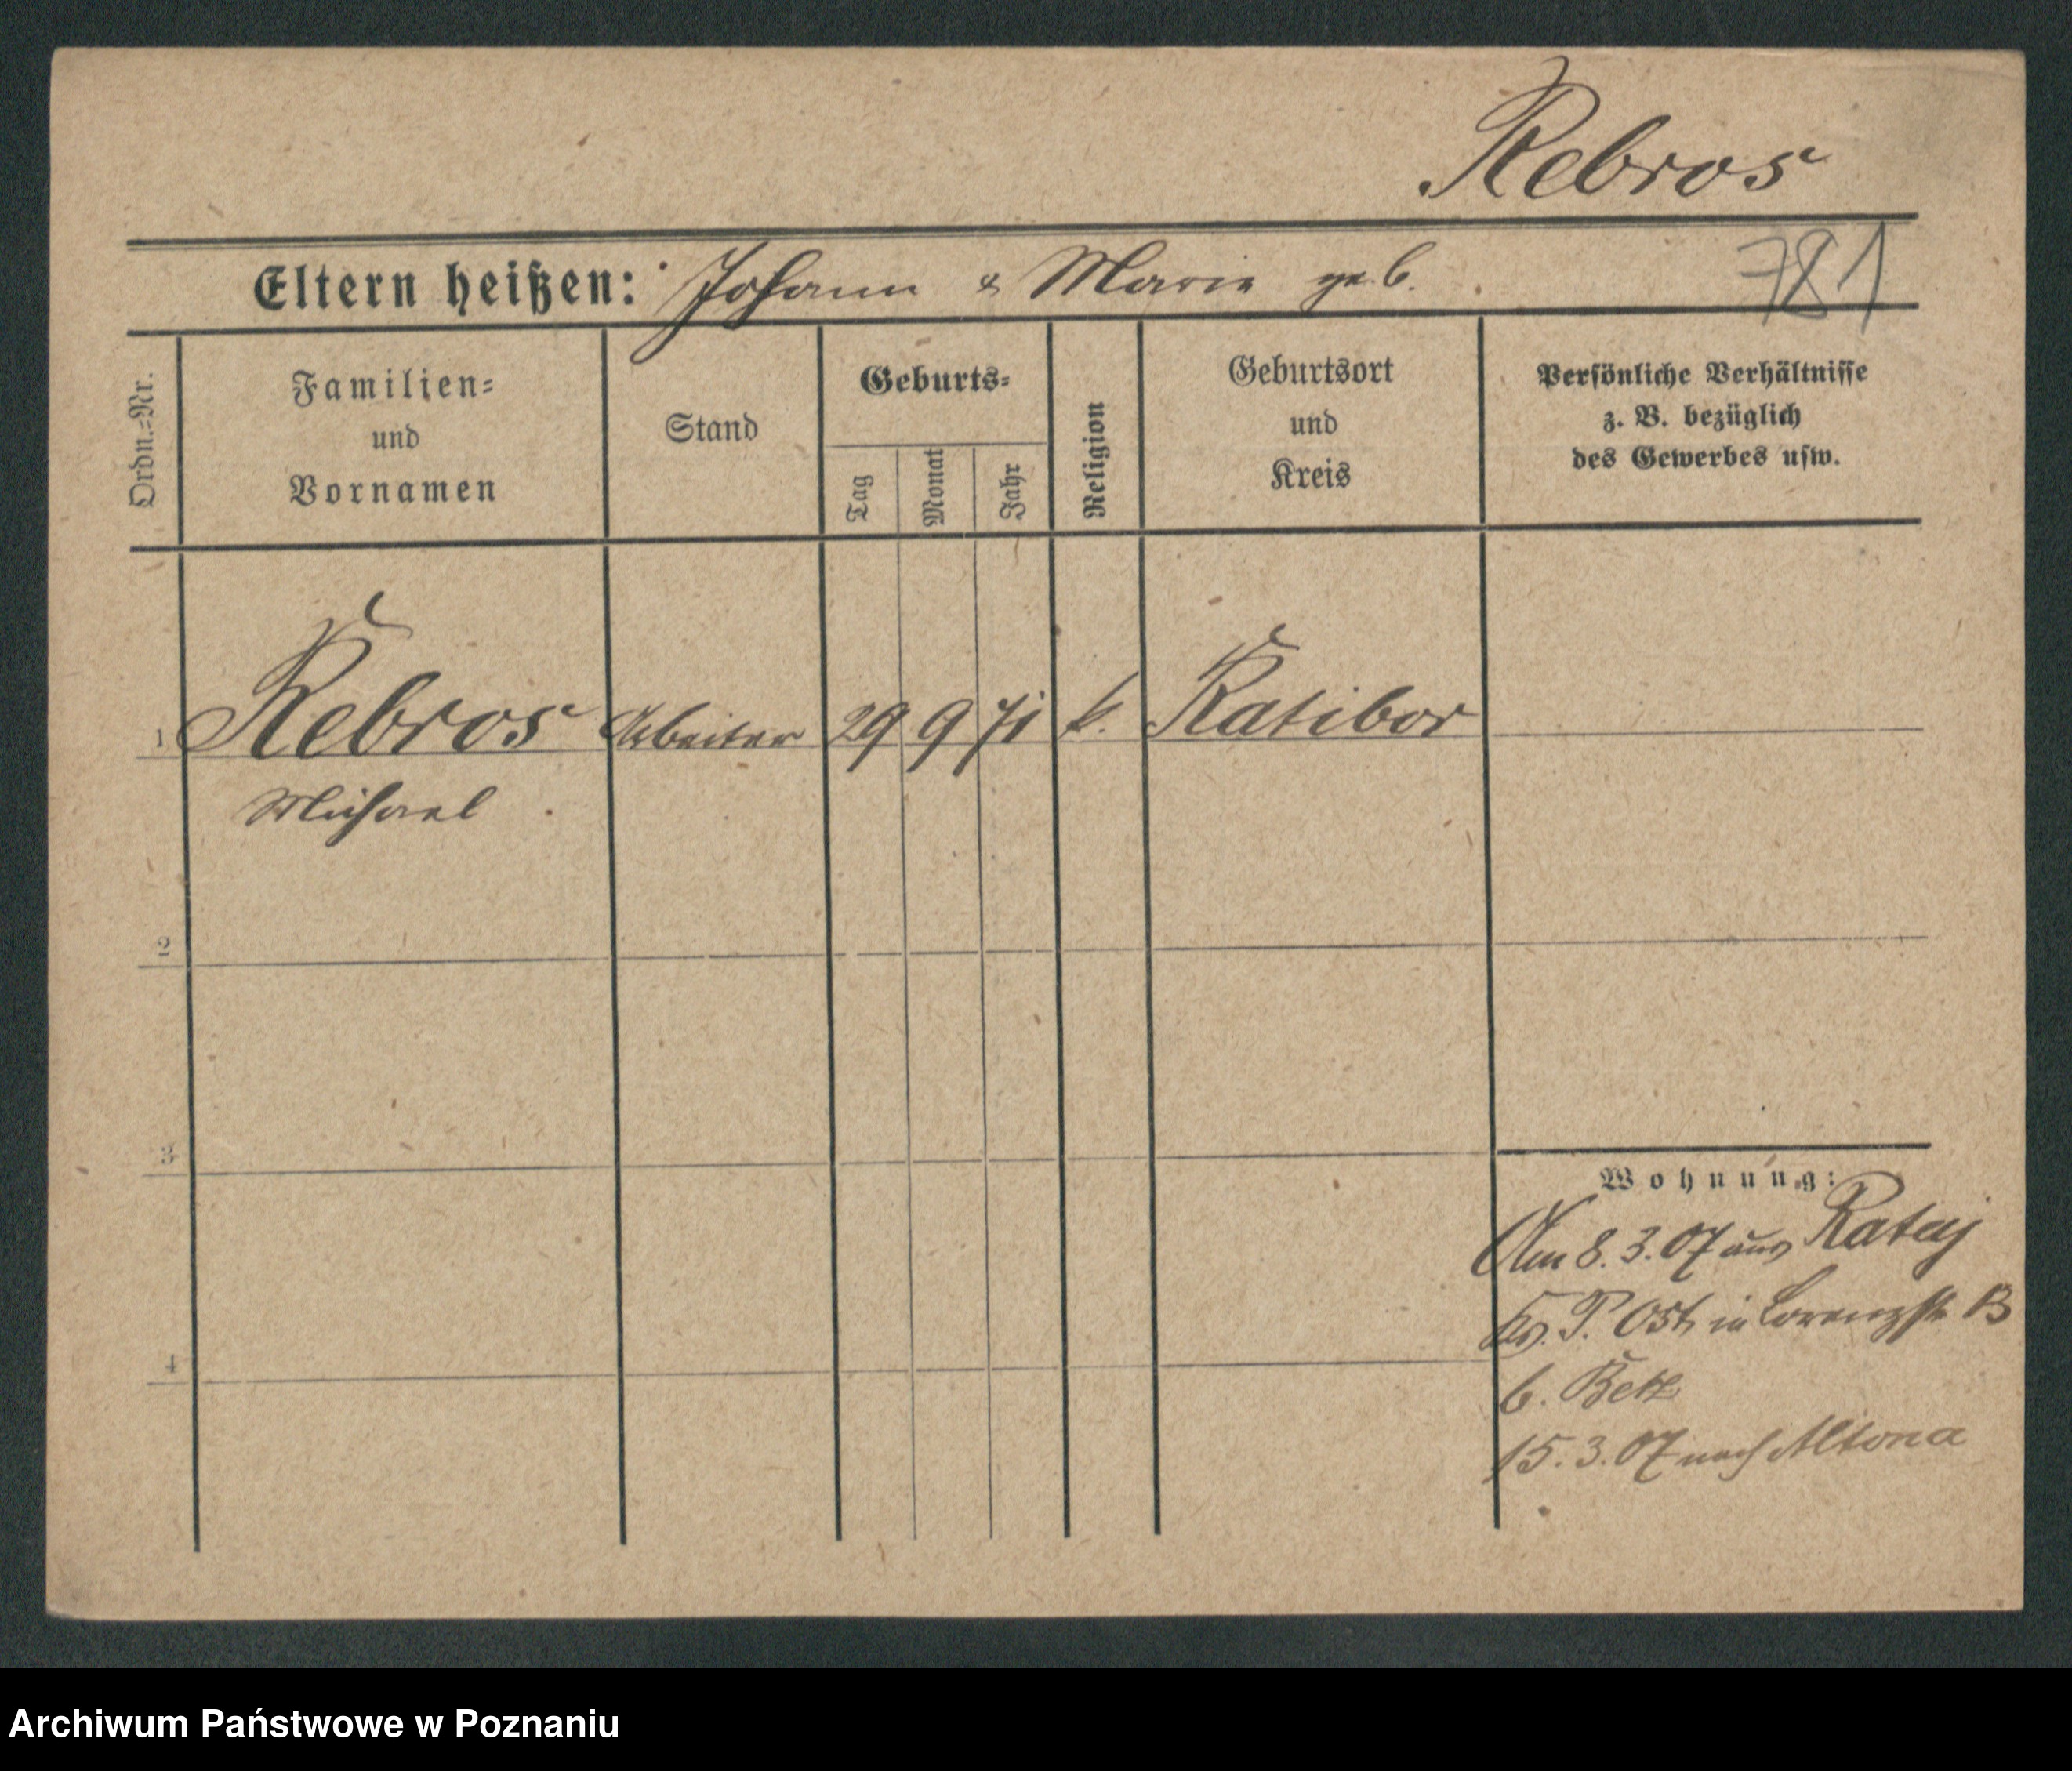 Rebros
Eltern heißen: Johann & Marie geb.
781
Ordn.-Nr.
Familien= und Vornamen
Stand
Geburts=
Tag
Monat
Jahr
Religion
Geburtsort und Kreis
Persönliche Verhältnisse
z. B. bezüglich
des Gewerbes usw.
1 Rebros Arbeiter 29 9 71 k. Ratibor
Michael
2
3
4
Wohnung:
Am 8.3.07 aus Rataj
Kr. P. Ost, in Lorenzstr
b.
15.3.07 nach Altona
Archiwum Państwowe w Poznaniu